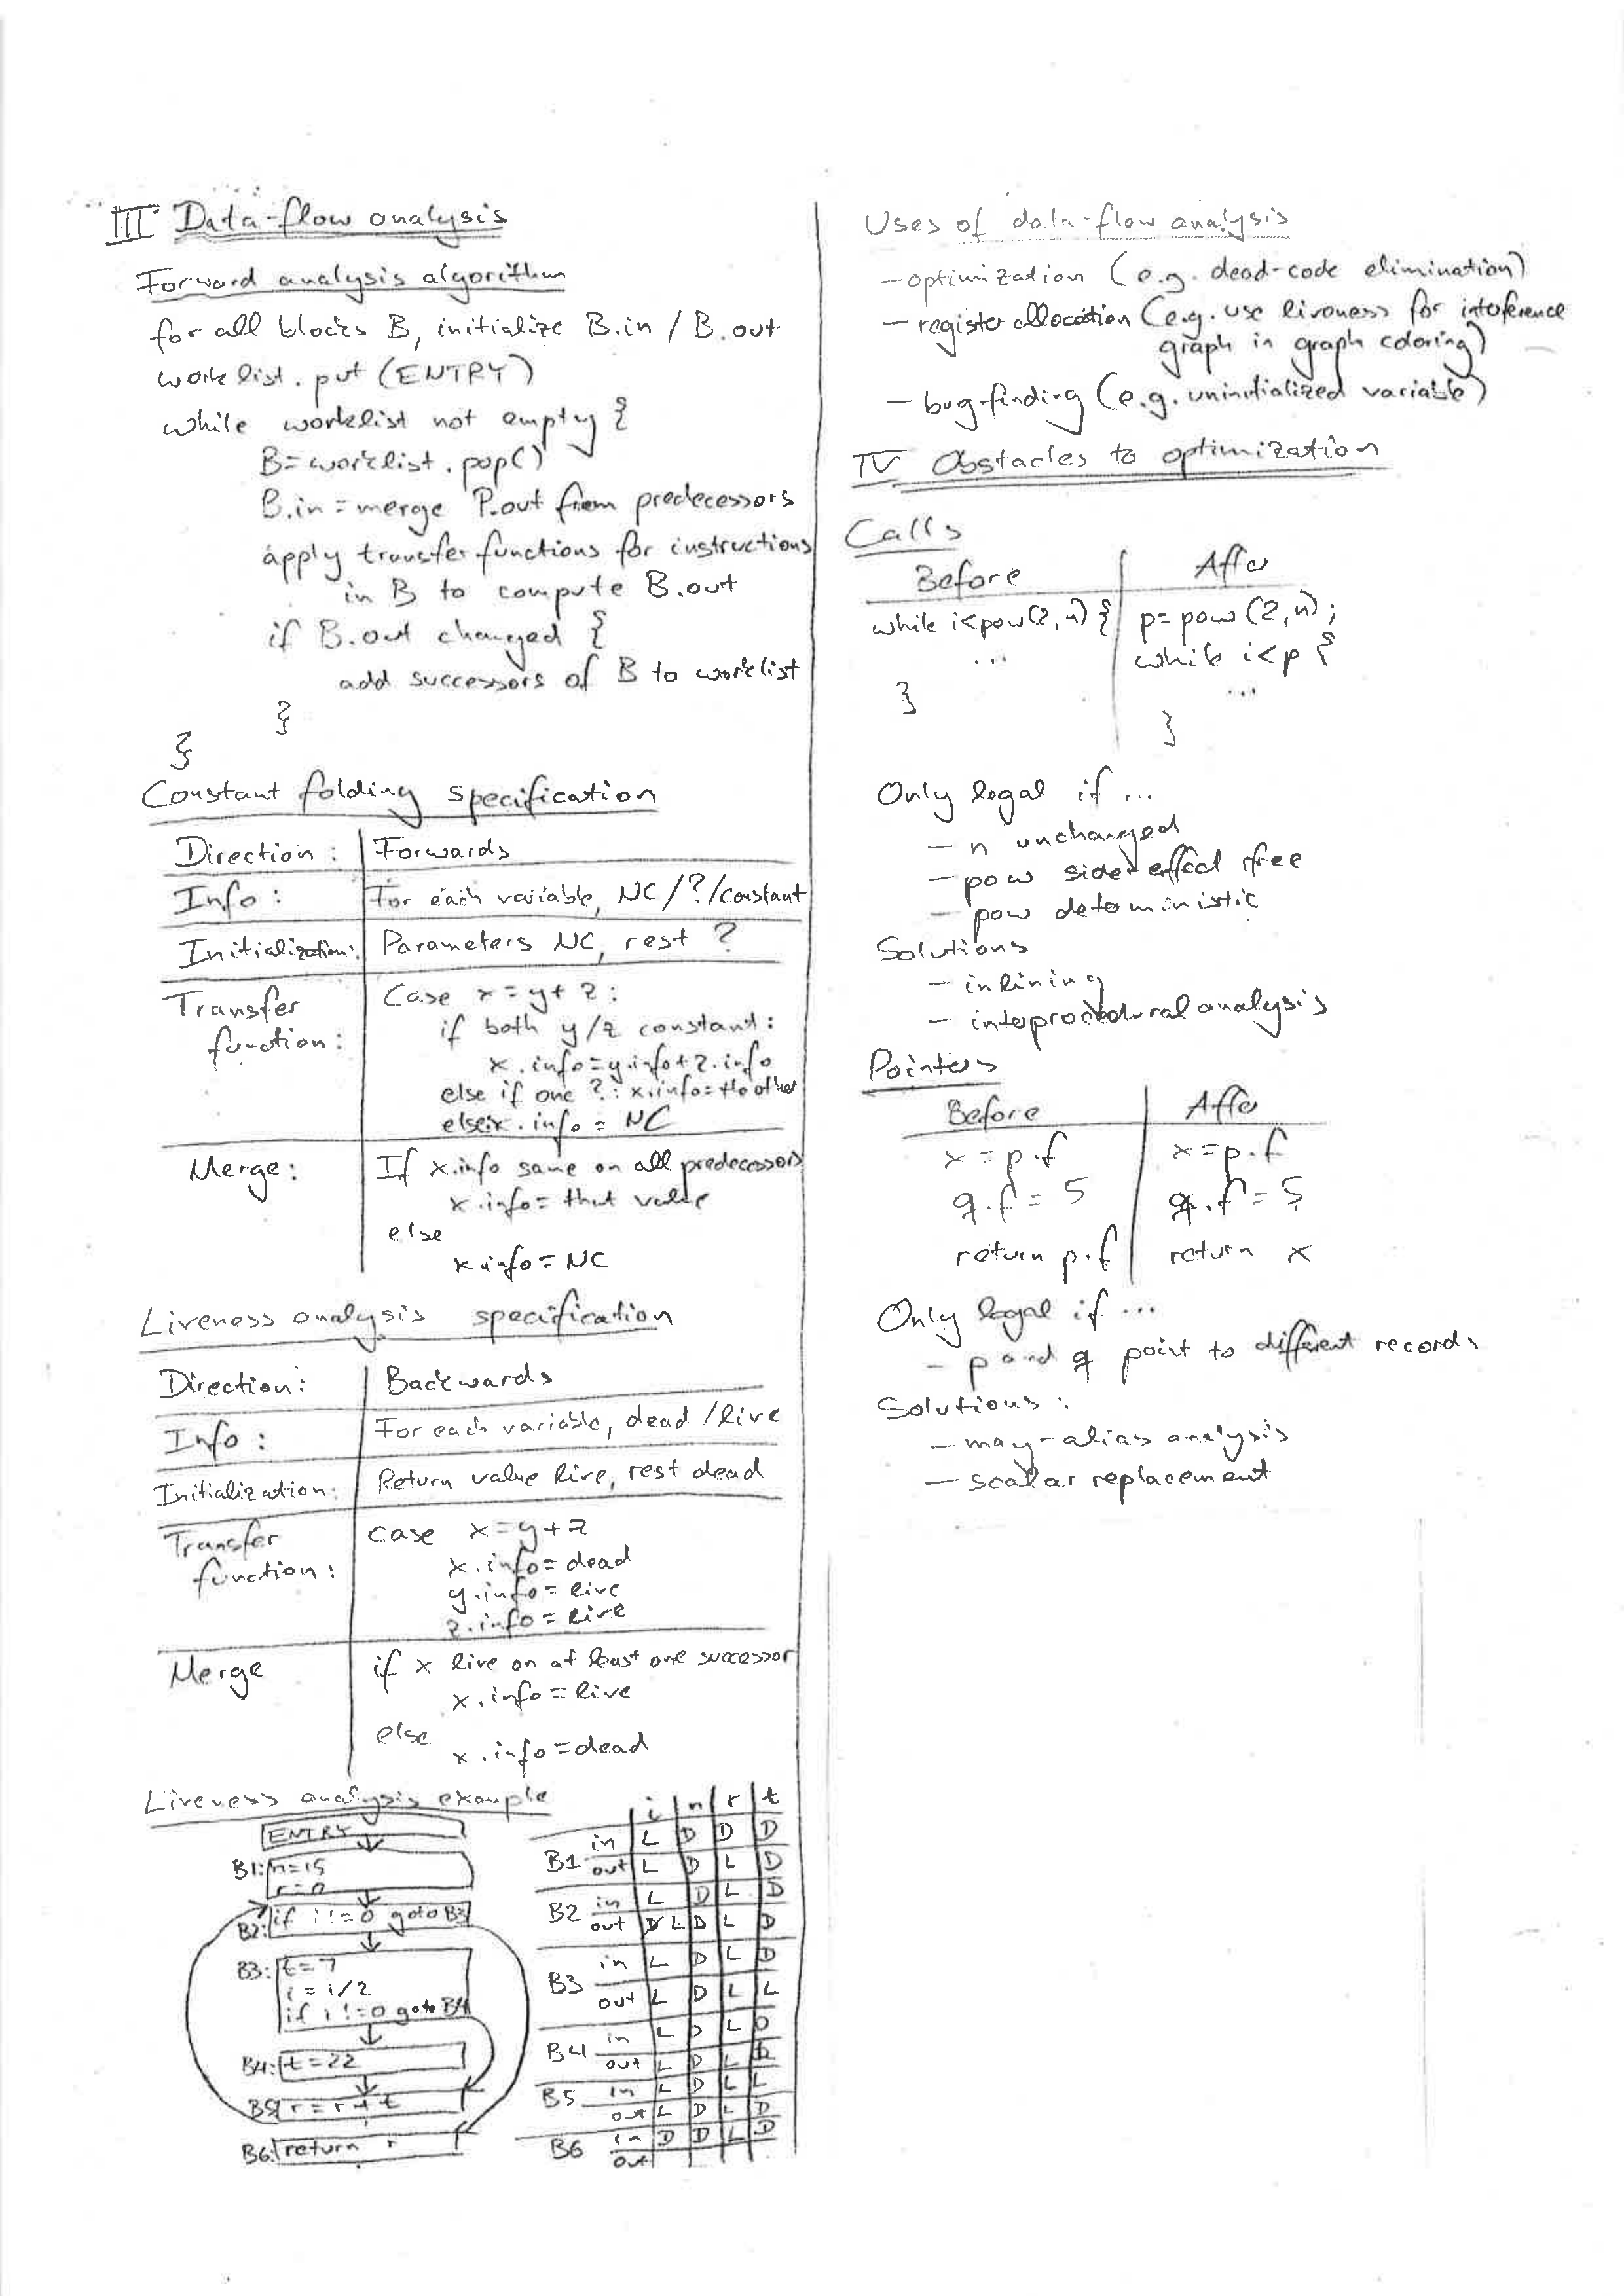 III Data-flow analysis
Forward analysis algorithm
for all blocks B, initialize B.in / B.out
worklist.put(ENTRY)
while worklist not empty {
B=worklist.pop()
B.in=merge P.out from predecessors
apply transfer functions for instructions
in B to compute B.out
if B.out changed {
add successors of B to worklist
}
}
Constant folding specification
Direction: Forwards
Info: For each variable, NC/?/constant
Initialization: Parameters NC, rest ?
Transfer function: Case x=y+z:
if both y/z constant:
x.info=y.info+z.info
else if one ?: x.info=the other
else x.info = NC
Merge: If x.info same on all predecessors
x.info= that value
else
x.info=NC
Liveness analysis specification
Direction: Backwards
Info: For each variable, dead/live
Initialization: Return value live, rest dead
Transfer function: case x=y+z
x.info=dead
y.info=live
z.info=live
Merge if x live on at least one successor
x.info=live
else
x.info=dead
Liveness analysis example
ENTRY
B1: n=15
r=0
B2: if i!=0 goto
B3: t=7
i=i/2
if i!=0 goto
B4: t=22
B5: r=r+t
B6: return r
i n r t
B1 in L D D D
out L D L D
B2 in L D L D
out L D L D
B3 in L D L D
out L D L L
B4 in L D L D
out L D L
B5 in L D L L
out L D L D
B6 in D D L D
out
Uses of data-flow analysis
- optimization (e.g. dead-code elimination)
- register allocation (e.g. use liveness for inteference
graph in graph coloring)
- bug finding (e.g. uninitialized variable)
IV Obstacles to optimization
Calls
Before After
while i<pow(2,n) { p=pow(2,n);
... while i<p {
} ...
}
Only legal if ...
- n unchanged
- pow side effect free
- pow deterministic
Solutions
- inlining
- interprocedural analysis
Pointers
Before After
x=p.f x=p.f
q.f=5 q.f=5
return p.f return x
Only legal if ...
- p and q point to different records
Solutions:
- may-alias analysis
- scalar replacement